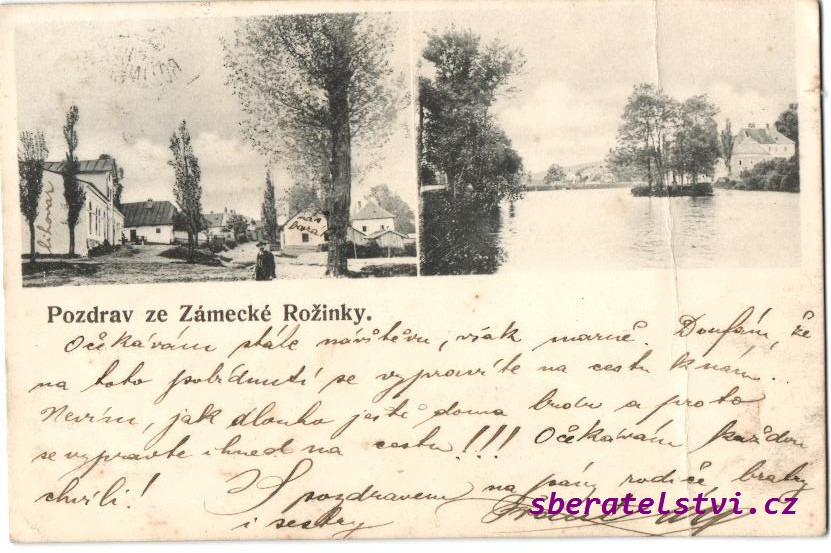 lihovar
náš
barák
Pozdrav ze Zámecké Rožinky.
Očekávám stále návštěvu, však marně. Doufám, že
na toto pobídnutí se vypravíte na cestu k nám..
Nevím, jak dlouho ještě doma budu a proto
se vypravte ihned na cestu!!! Očekávám každou
chvíli!
S pozdravem na pány rodiče bratry
i sestry
sberatelstvi.cz